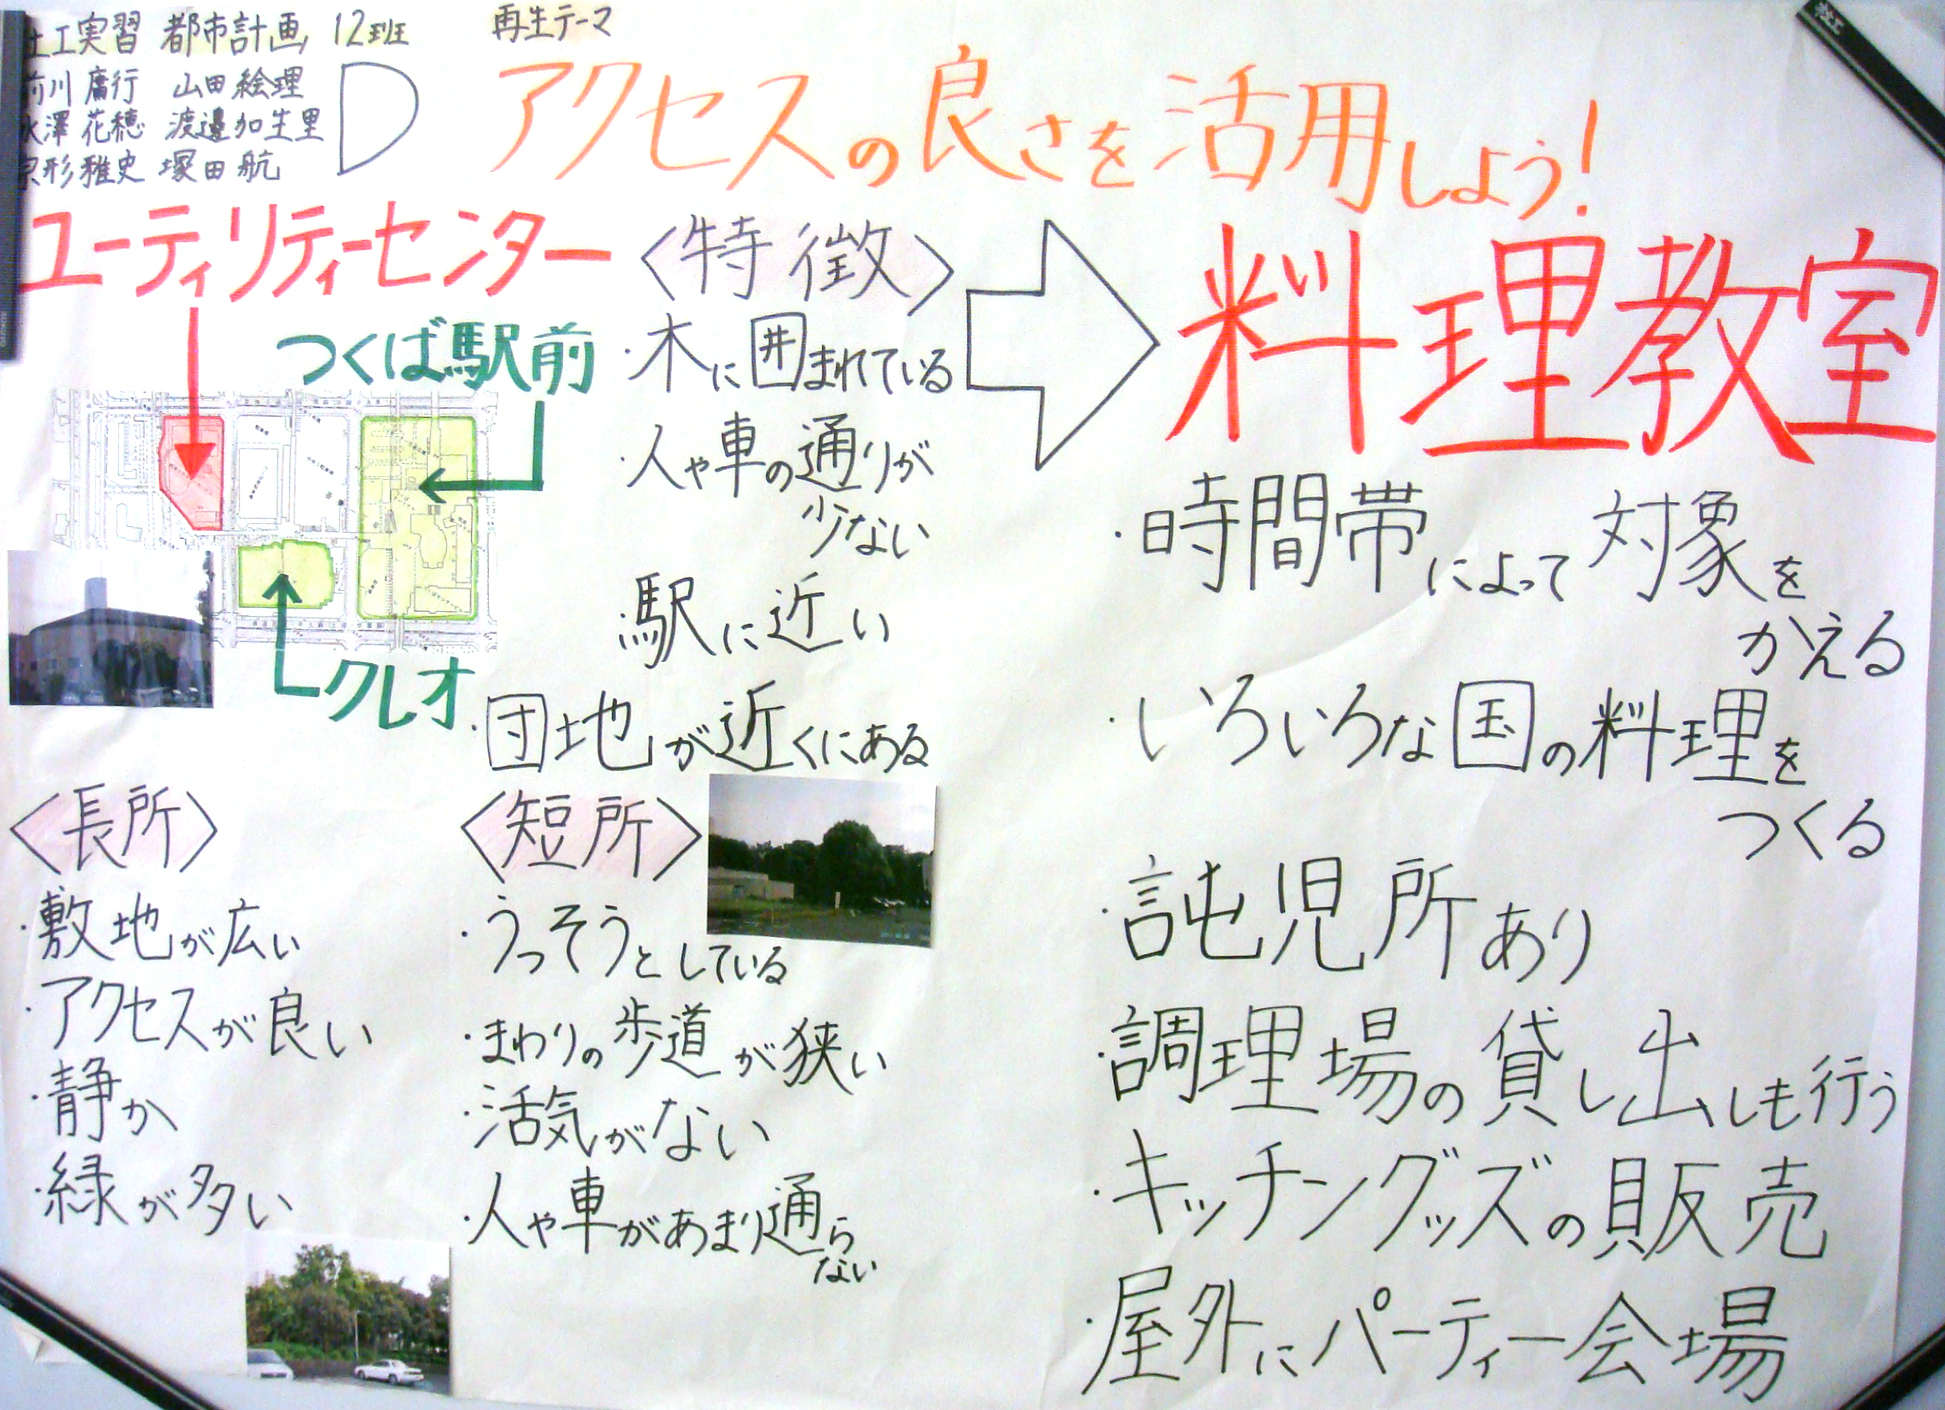 社工実習 都市計画 12班
前川 廣行 山田絵理
水澤 花穂 渡邉加生里
宗形雅史 塚田航
D
再生テーマ
アクセスの良さを活用しよう!
ユーティリティーセンター
つくば駅前
クレオ
〈特徴〉
・木に囲まれている
・人や車の通りが
少ない
・駅に近い
・団地が近くにある
〈長所〉
・敷地が広い
・アクセスが良い
・静か
・緑が多い
〈短所〉
・うっそうとしている
・まわりの歩道が狭い
・活気がない
・人や車があまり通ら
ない
料理教室
・時間帯によって対象を
かえる
・いろいろな国の料理を
つくる
・託児所あり
・調理場の貸し出しも行う
・キッチングッズの販売
・屋外にパーティー会場